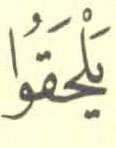 يَلْحَقُوا